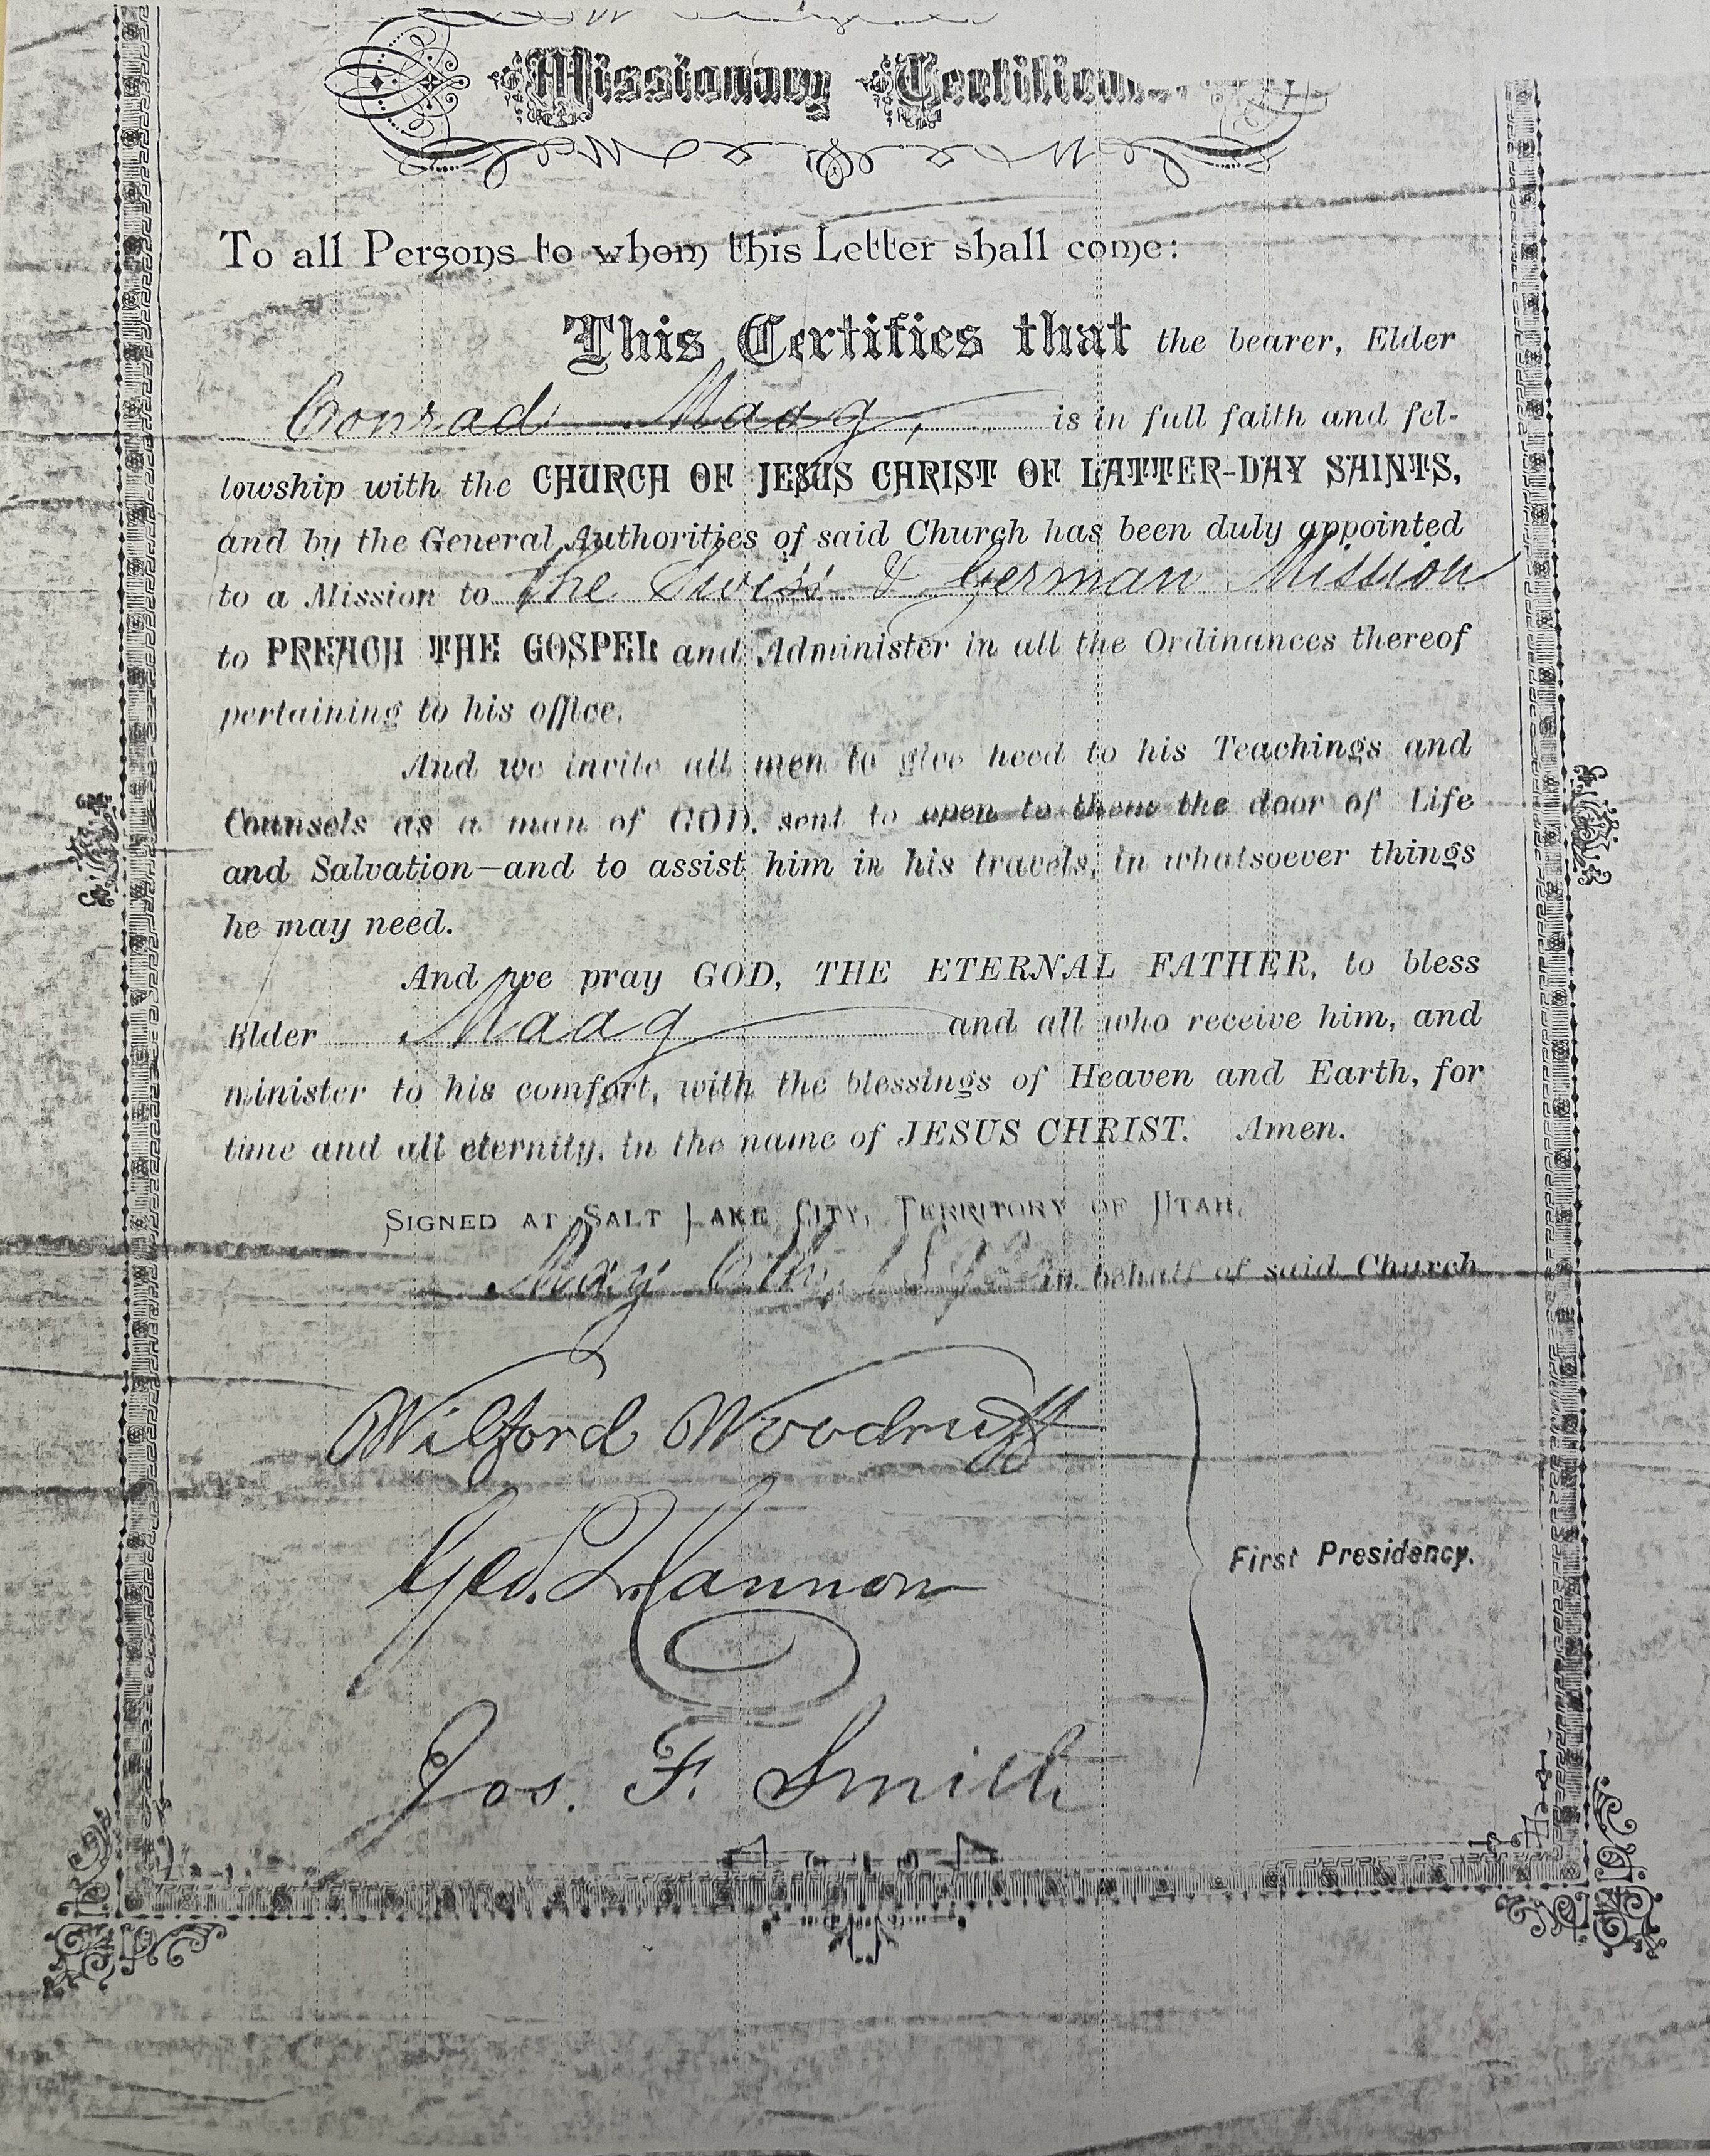 Missionary Certificate
To all Persons to whom this Letter shall come:
This Certifies that the bearer, Elder
Conrad Maag, is in full faith and fel-
lowship with the CHURCH OF JESUS CHRIST OF LATTER-DAY SAINTS,
and by the General Authorities of said Church has been duly appointed
to a Mission to the Swiss & German Mission
to PREACH THE GOSPEL and Administer in all the Ordinances thereof
pertaining to his office.
And we invite all men to give heed to his Teachings and
Counsels as a man of GOD, sent to open to them the door of Life
and Salvation—and to assist him in his travels, in whatsoever things
he may need.
And we pray GOD, THE ETERNAL FATHER, to bless
Elder Maag and all who receive him, and
minister to his comfort, with the blessings of Heaven and Earth, for
time and all eternity, in the name of JESUS CHRIST. Amen.
SIGNED AT SALT LAKE CITY, TERRITORY OF UTAH,
May in behalf of said Church
Wilford Woodruff
Geo. Q. Cannon
First Presidency.
Jos. F. Smith